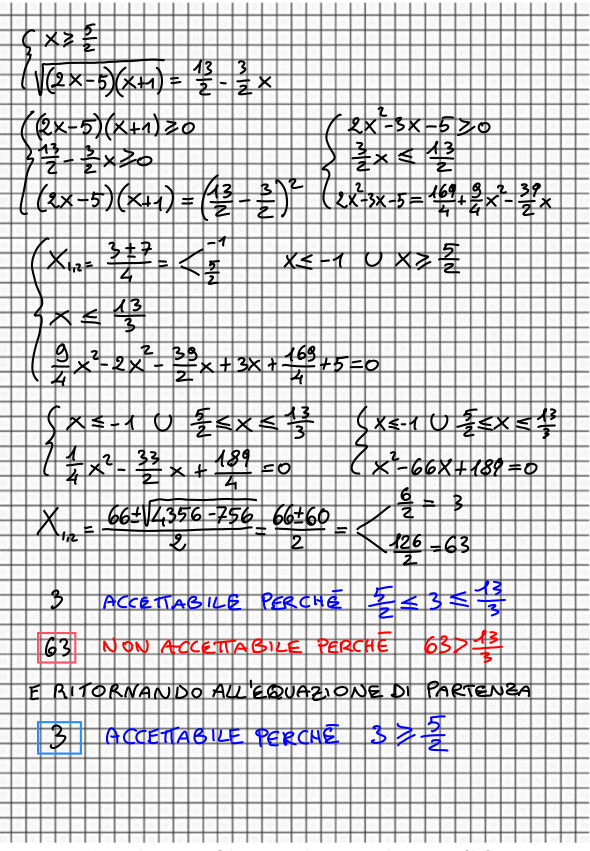 { x ≥ 5/2
√((2x-5)(x+1)) = 13/2 - 3/2 x
{ (2x-5)(x+1) ≥ 0
13/2 - 3/2 x ≥ 0
(2x-5)(x+1) = (13/2 - 3/2)²
{ 2x²-3x-5 ≥ 0
3/2 x ≤ 13/2
2x²-3x-5 = 169/4 + 9/4 x² - 39/2 x
{ X₁,₂ = (3±7)/4 = < -1 5/2 x ≤ -1 ∪ x ≥ 5/2
x ≤ 13/3
9/4 x² - 2x² - 39/2 x + 3x + 169/4 + 5 = 0
{ x ≤ -1 ∪ 5/2 ≤ x ≤ 13/3
1/4 x² - 33/2 x + 189/4 = 0
{ x ≤ -1 ∪ 5/2 ≤ x ≤ 13/3
x² - 66x + 189 = 0
X₁,₂ = (66±√(4,356-756))/2 = (66±60)/2 = < 6/2 = 3
126/2 = 63
3 ACCETTABILE PERCHÉ 5/2 ≤ 3 ≤ 13/3
63 NON ACCETTABILE PERCHÉ 63 > 13/3
E RITORNANDO ALL'EQUAZIONE DI PARTENZA
3 ACCETTABILE PERCHÉ 3 ≥ 5/2